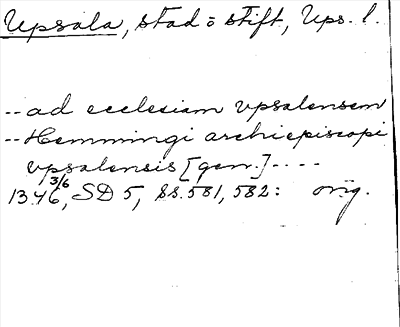 Upsala, stad o stift, Ups. l.
-- ad ecclesiam vpsalensem
-- Hemmingi archiepiscopi
vpsalensis [gen.] ----
1346 3/6, SD 5, ss. 581, 582: orig.